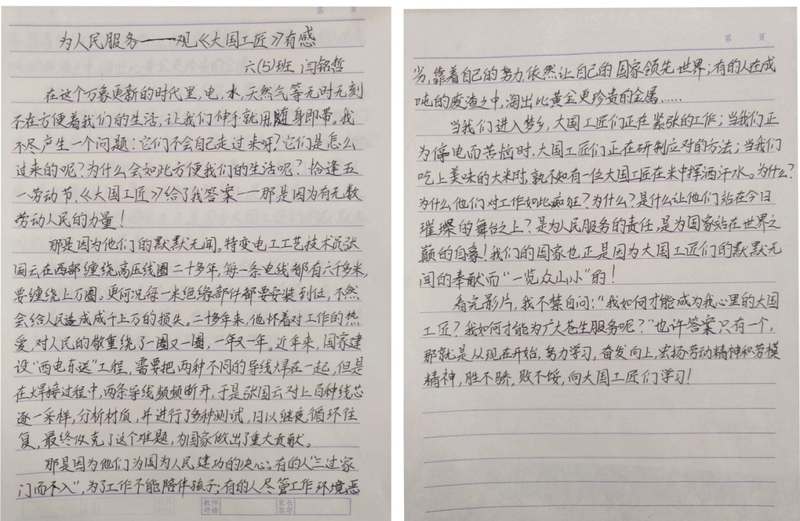 为人民服务——观《大国工匠》有感
六(5)班 闫铭哲
在这个万象更新的时代里，电，水，天然气等无时无刻
不在方便着我们的生活，让我们伸手就用随身即带，我
不尽产生一个问题：它们不会自己走过来呀？它们是怎么
过来的呢？为什么会如此方便我们的生活呢？恰逢五
一劳动节，《大国工匠》给了我答案——那是因为有无数
劳动人民的力量！
那是因为他们的默默无闻。特变电工工艺技术员张
国云在西部缠绕高压线圈二十多年，每一条电线都有六千多米，
要缠绕上万圈，更何况每一米绝缘部件都要安装到位，不然
会给人民造成成千上万的损失。二十多年来，他怀着对工作的热
爱，对人民的敬重绕了一圈又一圈，一年又一年。近年来，国家建
设“西电东送”工程，需要把两种不同的导线焊在一起，但是
在焊接过程中，两条导线频频断开，于是张国云对上百种线芯
逐一采样，分析材质，并进行了多种测试，日以继夜循环往
复，最终攻克了这个难题，为国家做出了重大贡献。
那是因为他们为国为人民建功的决心；有的人“三过家
门而不入”，为了工作不能陪伴孩子；有的人尽管工作环境恶
劣，靠着自己的努力依然让自己的国家领先世界；有的人在成
吨的废渣之中，淘出比黄金更珍贵的金属……
当我们进入梦乡，大国工匠们正在紧张的工作；当我们正
为停电而苦恼时，大国工匠们正在研制应对的方法；当我们
吃上美味的大米时，就不知有一位大国工匠在米中挥洒汗水。为什么？
为什么他们对工作如此疯狂？为什么？是什么让他们站在今日
璀璨的舞台之上？是为人民服务的责任，是为国家站在世界之
巅的自豪！我们的国家也正是因为大国工匠们的默默无
闻的奉献而“一览众山小”的！
看完影片，我不禁自问：“我如何才能成为我心里的大国
工匠？我如何才能为广大苍生服务呢？”也许答案只有一个，
那就是从现在开始，努力学习，奋发向上，宏扬劳动精神和劳模
精神，胜不骄，败不馁，向大国工匠们学习！